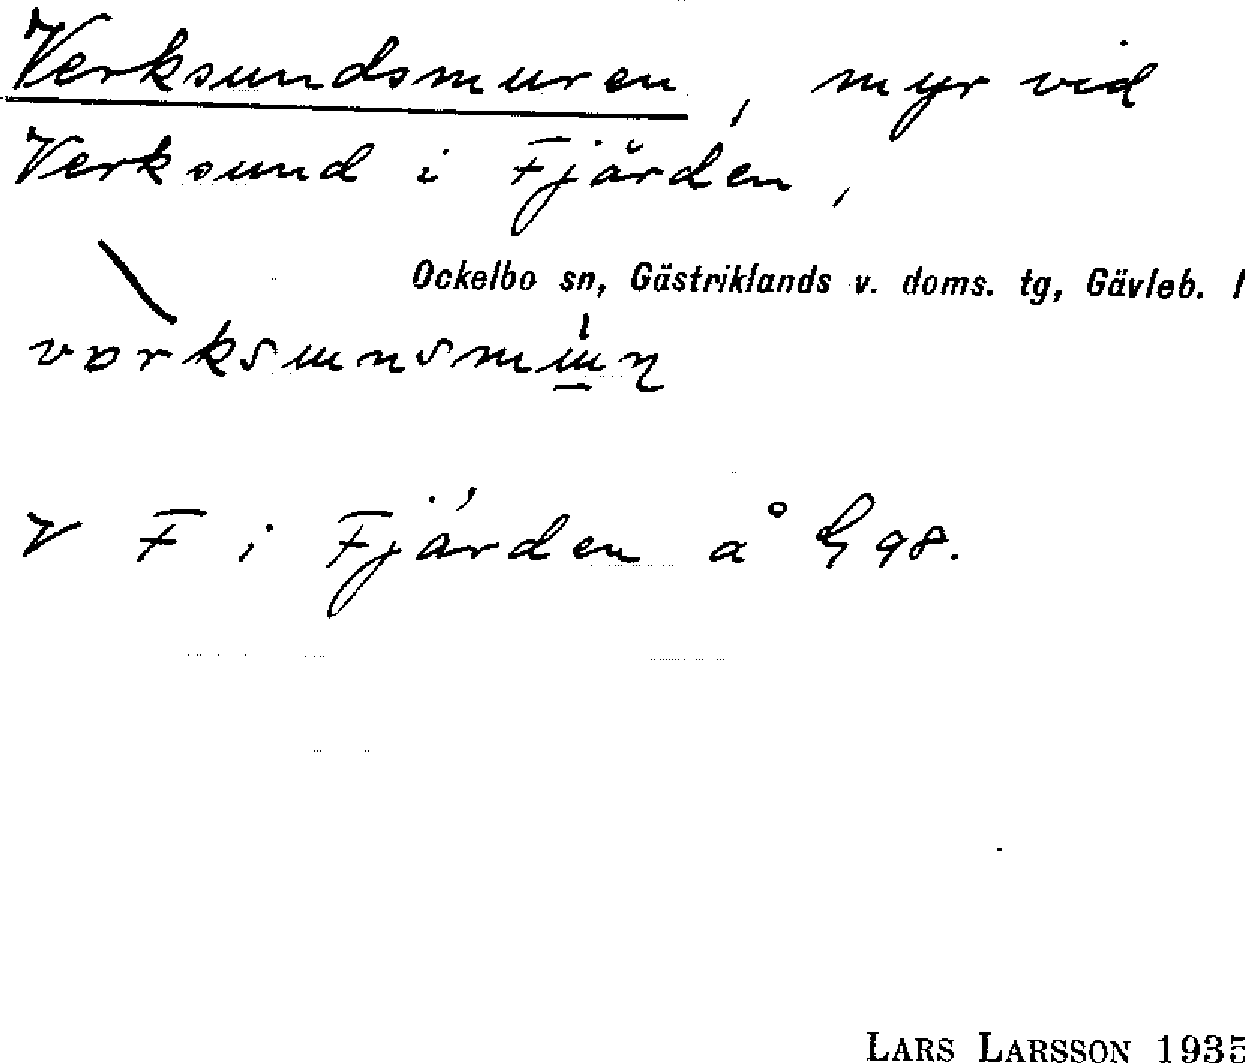 Verksundsmuren, myr vid
Verksund i Fjärden,
Ockelbo sn, Gästriklands v. doms. tg, Gävleb. l
V F i Fjärden å G 98.
LARS LARSSON 1935